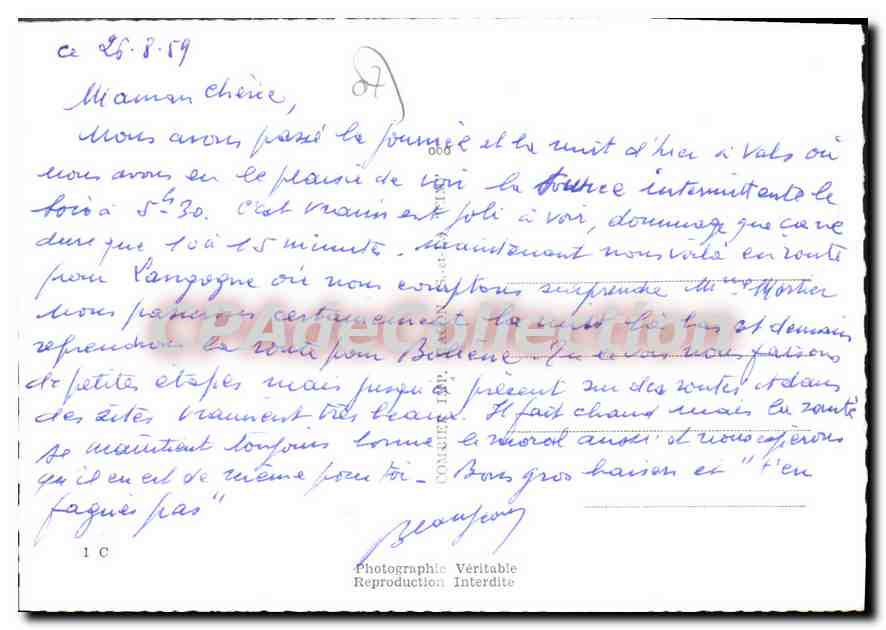 ce 25.8.59
07
Maman Chérie,
Nous avons passé la journée et la nuit d'hier à Vals où
nous avons eu le plaisir de voir la source intermittente le
soir à 5h30. C'est vraiment joli à voir, dommage que ça ne
dure que 10 à 15 minutes. Maintenant nous voilà en route
pour Langogne où nous comptons surprendre Mme Mortier
nous passerons certainement la nuit là bas et demain
reprendrons la route pour Bollène. Tu vois nous faisons
de petites étapes mais jusqu'à présent sur des routes et dans
des sites vraiment très beaux. Il fait chaud mais la santé
se maintient toujours bonne le moral aussi et nous espérons
qu'il en est de même pour toi - Bons gros baisers et "t'en
fagues pas"
CPAdeCollection
COMBIER IMP. MACON
1 C
Photographie Véritable
Reproduction Interdite